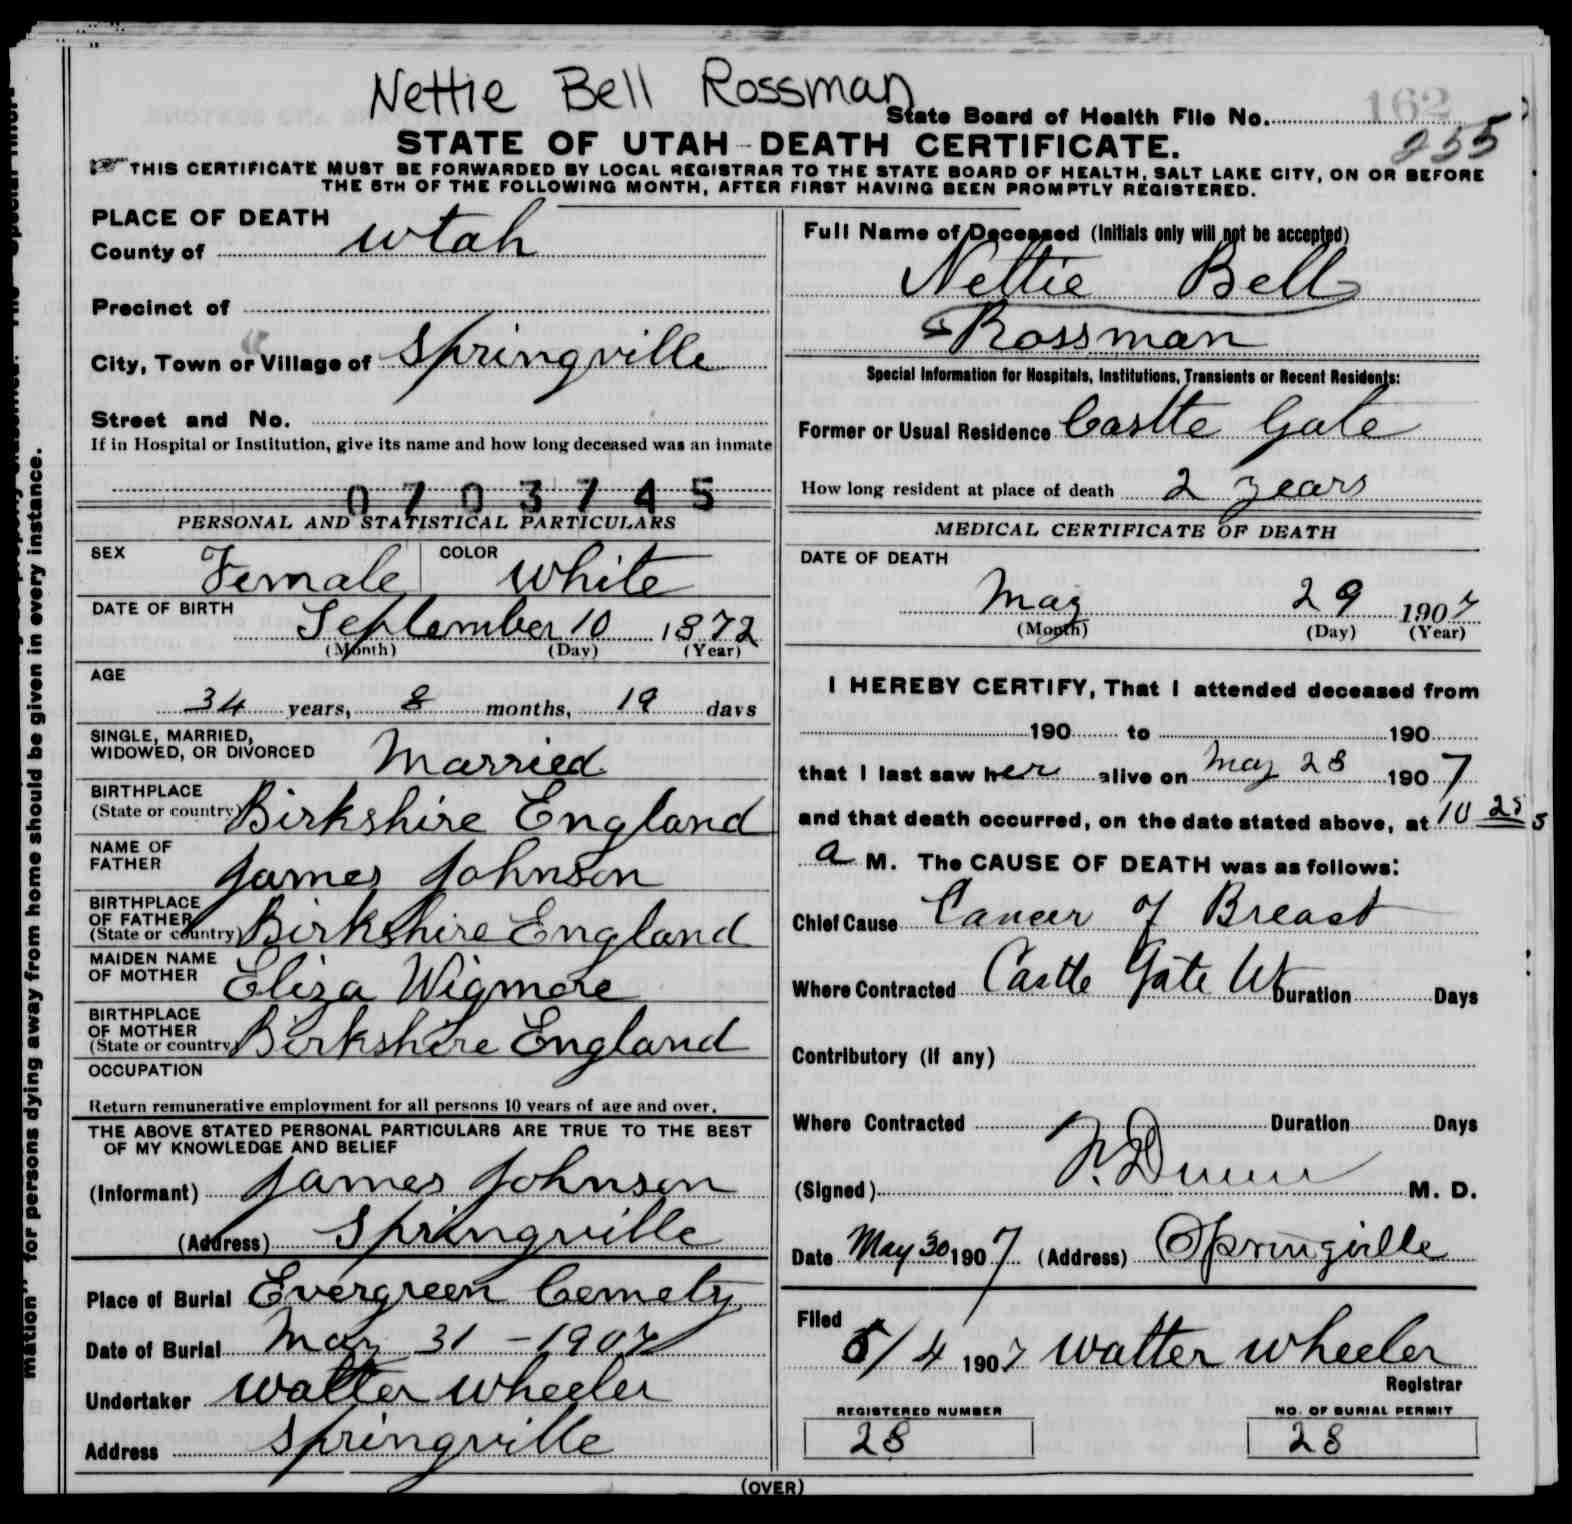 Nettie Bell Rossman
State Board of Health File No. 162
255
STATE OF UTAH-DEATH CERTIFICATE.
THIS CERTIFICATE MUST BE FORWARDED BY LOCAL REGISTRAR TO THE STATE BOARD OF HEALTH, SALT LAKE CITY, ON OR BEFORE
THE 5TH OF THE FOLLOWING MONTH, AFTER FIRST HAVING BEEN PROMPTLY REGISTERED.
PLACE OF DEATH
County of Utah
Precinct of
City, Town or Village of Springville
Street and No.
If in Hospital or Institution, give its name and how long deceased was an inmate
0703745
PERSONAL AND STATISTICAL PARTICULARS
SEX Female COLOR White
DATE OF BIRTH
September 10 1872
(Month) (Day) (Year)
AGE
34 years, 8 months, 19 days
SINGLE, MARRIED,
WIDOWED, OR DIVORCED Married
BIRTHPLACE
(State or country) Birkshire England
NAME OF
FATHER James Johnson
BIRTHPLACE
OF FATHER
(State or country) Birkshire England
MAIDEN NAME
OF MOTHER Eliza Wigmore
BIRTHPLACE
OF MOTHER
(State or country) Birkshire England
OCCUPATION
Return remunerative employment for all persons 10 years of age and over.
THE ABOVE STATED PERSONAL PARTICULARS ARE TRUE TO THE BEST
OF MY KNOWLEDGE AND BELIEF
(Informant) James Johnson
(Address) Springville
Place of Burial Evergreen Cemety
Date of Burial May 31-1907
Undertaker Walter Wheeler
Address Springville
Full Name of Deceased (Initials only will not be accepted)
Nettie Bell
Rossman
Special Information for Hospitals, Institutions, Transients or Recent Residents:
Former or Usual Residence Castle Gate
How long resident at place of death 2 years
MEDICAL CERTIFICATE OF DEATH
DATE OF DEATH
May 29 1907
(Month) (Day) (Year)
I HEREBY CERTIFY, That I attended deceased from
190 to 190
that I last saw her alive on May 28 1907
and that death occurred, on the date stated above, at 10 25
a M. The CAUSE OF DEATH was as follows:
Chief Cause Cancer of Breast
Where Contracted Castle Gate Ut Duration Days
Contributory (if any)
Where Contracted Duration Days
(Signed) Dunn M. D.
Date May 30 1907 (Address) Springville
Filed
6/4 1907 Walter Wheeler
Registrar
REGISTERED NUMBER
28
NO. OF BURIAL PERMIT
28
(OVER)
mation" for persons dying away from home should be given in every instance.